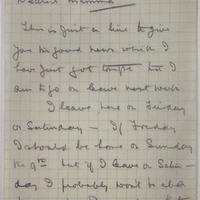 Dearest Mamma
This is just a line to give
you the good news which I
have just got tonight that I
am to go on leave next week
I leave here on Friday
or Saturday – If Friday
I should be home on Sunday
the 9th but if I leave on Satur-
day I probably won't be able